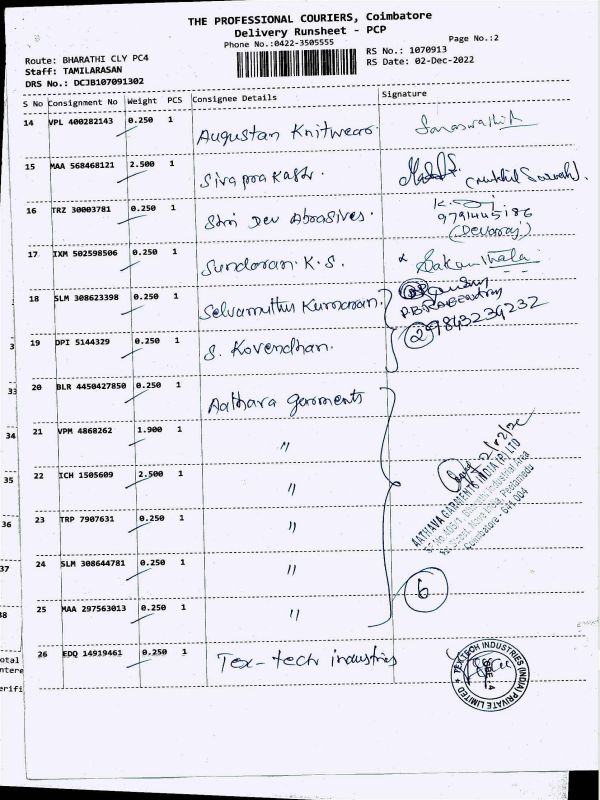 THE PROFESSIONAL COURIERS, Coimbatore
Delivery Runsheet - PCP
Phone No.:0422-3505555
Page No.:2
Route: BHARATHI CLY PC4
RS No.: 1070913
Staff: TAMILARASAN
RS Date: 02-Dec-2022
DRS No.: DCJB107091302
S No Consignment No Weight PCS Consignee Details Signature
14 VPL 400282143 0.250 1 Augustan Knitwears.
15 MAA 568468121 2.500 1 Siva prakash.
16 TRZ 30003781 0.250 1 Shri Dev Abrasives. 9791445186
(Devaraj)
17 IXM 502598506 0.250 1 Sundaran K.S.
18 SLM 308623398 0.250 1 Selvamuthu Kumaran
2 9843234232
19 DPI 5144329 0.250 1 S. Kovendhan.
20 BLR 4450427850 0.250 1 Aathava garments
21 VPM 4868262 1.900 1 "
22 ICH 1505609 2.500 1 "
23 TRP 7907631 0.250 1 "
24 SLM 308644781 0.250 1 "
25 MAA 297563013 0.250 1 "
6
AATHAVA GARMENTS INDIA (P) LTD
Coimbatore - 641 004
26 EDQ 14919461 0.250 1 Tex-tech industries
TEXTECH INDUSTRIES (INDIA) PRIVATE LIMITED
CBE - 4
3
33
34
35
36
37
38
otal
ntere
erifi